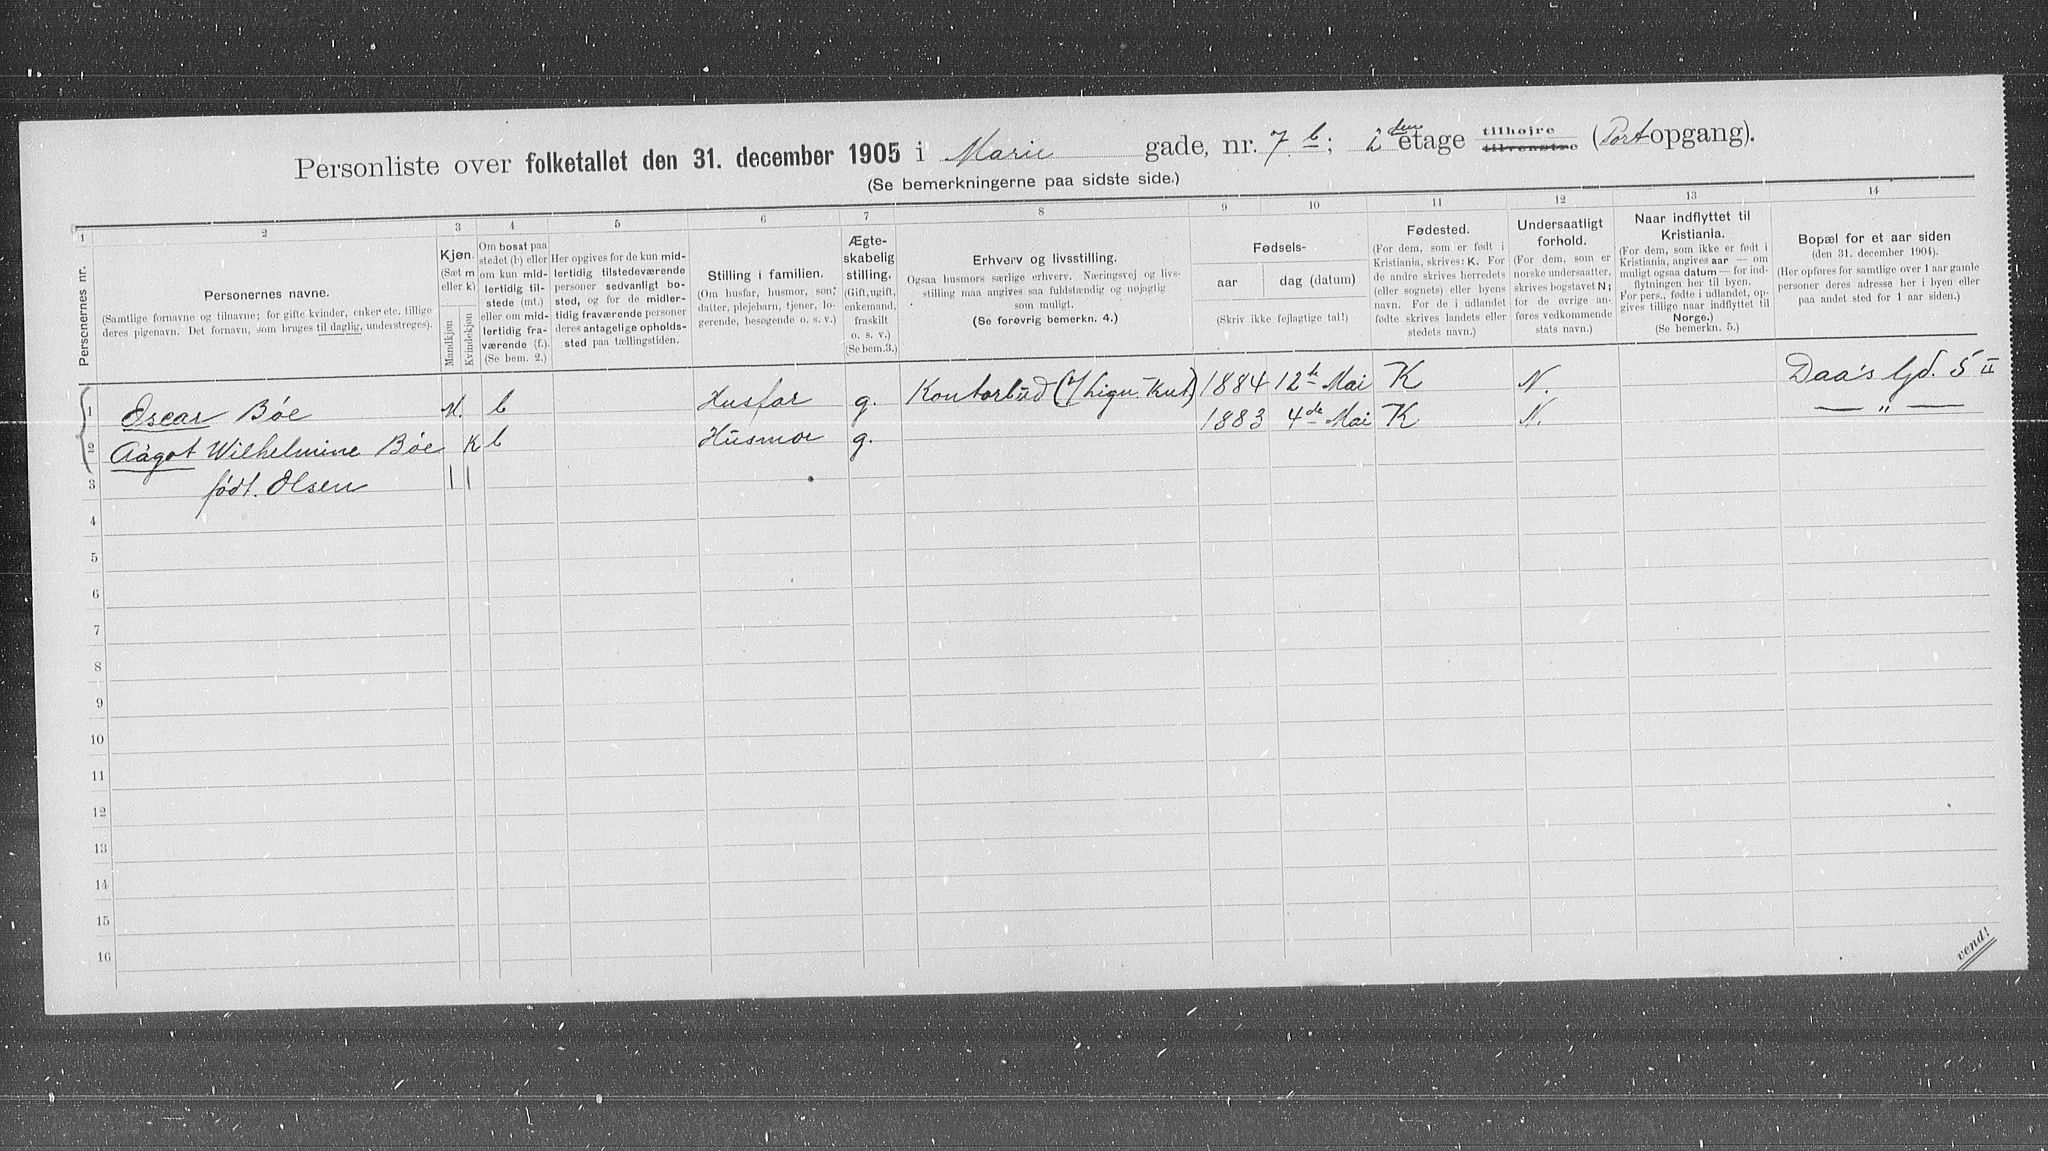 Personliste over folketallet den 31. december 1905 i Marie gade, nr. 7 b; 2 den etage tilhøjre tilvenstre (Portopgang).
(Se bemerkningerne paa sidste side.)
1 2 3 4 5 6 7 8 9 10 11 12 13 14
Personernes nr.
Personernes navne.
(Samtlige fornavne og tilnavne; for gifte kvinder, enker etc. tillige
deres pigenavn. Det fornavn, som bruges til daglig, understreges).
Kjøn.
(Sæt m
eller k)
Mandkjøn
Kvindekjøn
Om bosat paa
stedet (b) eller
om kun mid-
lertidig til-
stede (mt.)
eller om mid-
lertidig fra-
værende (f.).
(Se bem. 2.)
Her opgives for de kun mid-
lertidig tilstedeværende
personer sedvanligt bo-
sted, og for de midler-
tidig fraværende personer
deres antagelige opholds-
sted paa tællingstiden.
Stilling i familien.
(Om husfar, husmor, søn,
datter, plejebarn, tjener, lo-
gerende, besøgende o. s. v.)
Ægte-
skabelig
stilling.
(Gift, ugift,
enkemand,
fraskilt
o. s. v.)
(Se bem.3.)
Erhverv og livsstilling.
Ogsaa husmors særlige erhverv. Næringsvej og livs-
stilling maa angives saa fuldstændig og nøjagtig
som muligt.
(Se forøvrig bemerkn. 4.)
Fødsels-
aar dag (datum)
(Skriv ikke fejlagtige tal!)
Fødested.
(For dem, som er født i
Kristiania, skrives: K. For
de andre skrives herredets
(eller sognets) eller byens
navn. For de i udlandet
fødte skrives landets eller
stedets navn.)
Undersaatligt
forhold.
(For dem, som er
norske undersaatter,
skrives bogstavet N;
for de øvrige an-
føres vedkommende
stats navn.)
Naar indflyttet til
Kristiania.
(For dem, som ikke er født i
Kristiania, angives aar — om
muligt ogsaa datum — for ind-
flytningen her til byen.
For pers., fødte i udlandet, op-
gives tillige naar indflyttet til
Norge.)
(Se bemerkn. 5.)
Bopæl for et aar siden
(den 31. december 1904).
(Her opføres for samtlige over 1 aar gamle
personer deres adresse her i byen eller
paa andet sted for 1 aar siden.)
1 Oscar Bøe M. b Husfar g. Kontorbud 1884 12te Mai K N. Daa's Gd. 5 II
2 Aagot Wilhelmine Bøe K b Husmor g. 1883 4de Mai K N. — „ —
3 født. Olsen
4
5
6
7
8
9
10
11
12
13
14
15
16
vend!